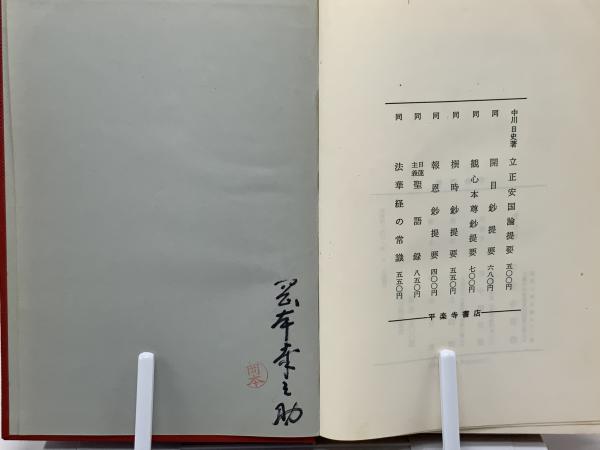 中川日史著 立正安国論提要 五〇〇円
同 開目鈔提要 六八〇円
同 観心本尊鈔提要 七〇〇円
同 撰時鈔提要 五五〇円
同 報恩鈔提要 四〇〇円
同 日蓮主義聖語録 八五〇円
同 法華経の常識 五五〇円
平楽寺書店
岡本幸之助
岡本